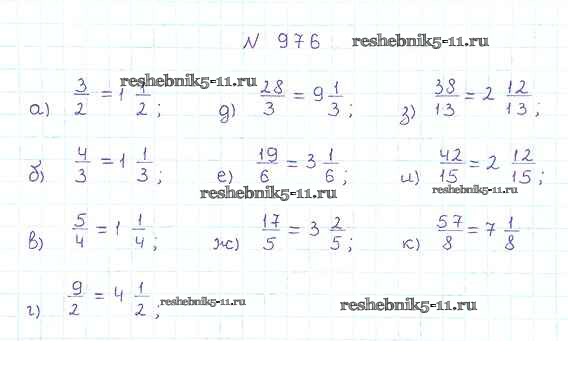 N 976 reshebnik5-11.ru
reshebnik5-11.ru
а) 3/2 = 1 1/2; д) 28/3 = 9 1/3; з) 38/13 = 2 12/13;
б) 4/3 = 1 1/3; е) 19/6 = 3 1/6; и) 42/15 = 2 12/15;
reshebnik5-11.ru reshebnik5-11.ru
в) 5/4 = 1 1/4; ж) 17/5 = 3 2/5; к) 57/8 = 7 1/8
г) 9/2 = 4 1/2; reshebnik5-11.ru reshebnik5-11.ru